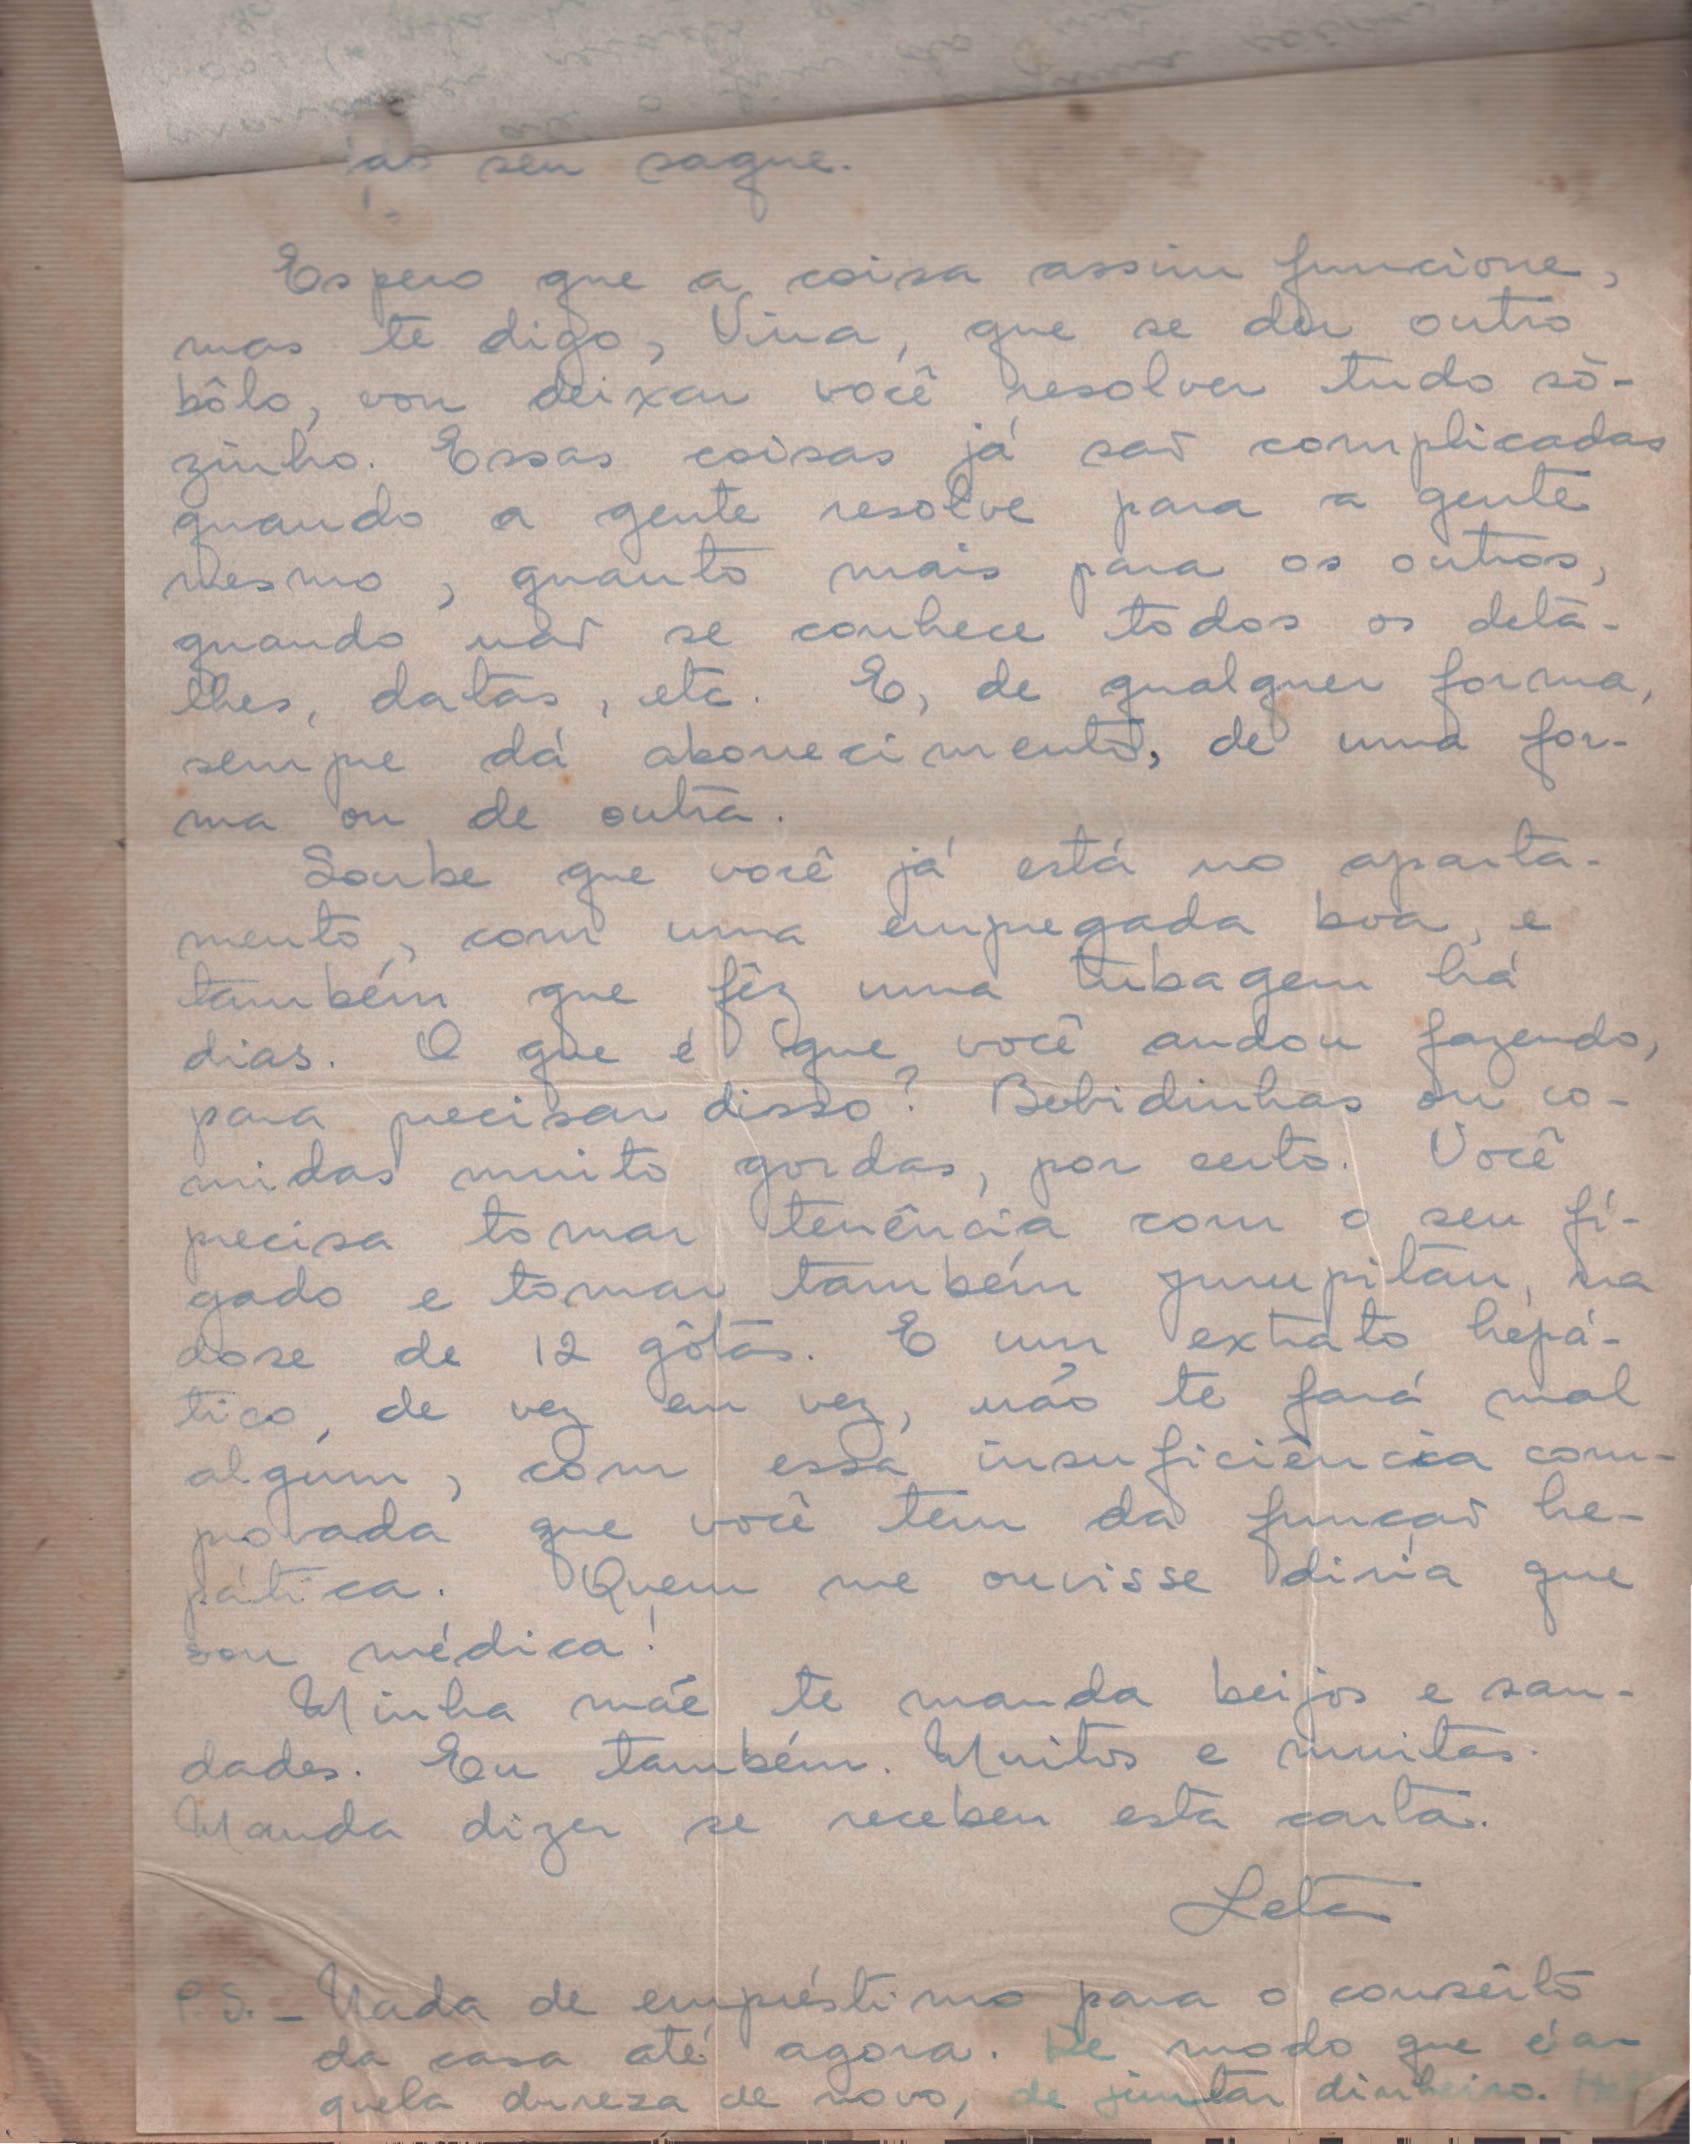 do seu saque.
Espero que a coisa assim funcione,
mas te digo, Vina, que se der outro
bôlo, vou deixar você resolver tudo sò-
zinho. Essas coisas já são complicadas
quando a gente resolve para a gente
mesmo, quanto mais para os outros,
quando não se conhece todos os deta-
lhes, datas, etc. E, de qualquer forma,
sempre dá aborrecimento, de uma for-
ma ou de outra.
Soube que você já está no aparta-
mento, com uma empregada boa, e
também que fêz uma tubagem há
dias. O que é que você andou fazendo,
para precisar disso? Bebidinhas ou co-
midas muito gordas, por certo. Você
precisa tomar tenência com o seu fí-
gado e tomar também Jurupitan, na
dose de 12 gôtas. E um extrato hepá-
tico, de vez em vez, não te fará mal
algum, com essa insuficiência com-
provada que você tem da função he-
pática. Quem me ouvisse diria que
sou médica!
Minha mãe te manda beijos e sau-
dades. Eu também. Muitos e muitas.
Manda dizer se recebeu esta carta.
Leta
P.S. - Nada de empréstimo para o consêrto
da casa até agora. De modo que é a-
quela dureza de novo, de juntar dinheiro.